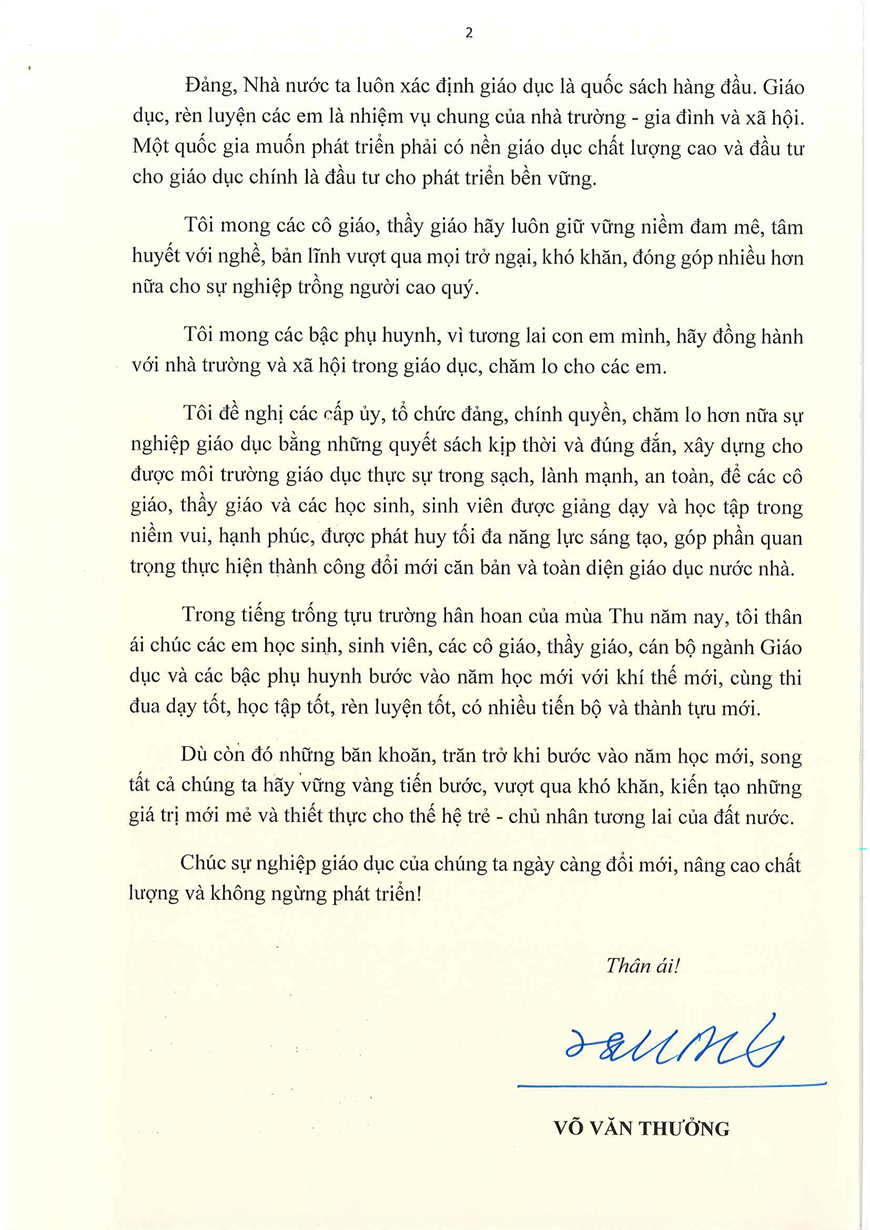 2
Đảng, Nhà nước ta luôn xác định giáo dục là quốc sách hàng đầu. Giáo
dục, rèn luyện các em là nhiệm vụ chung của nhà trường - gia đình và xã hội.
Một quốc gia muốn phát triển phải có nền giáo dục chất lượng cao và đầu tư
cho giáo dục chính là đầu tư cho phát triển bền vững.
Tôi mong các cô giáo, thầy giáo hãy luôn giữ vững niềm đam mê, tâm
huyết với nghề, bản lĩnh vượt qua mọi trở ngại, khó khăn, đóng góp nhiều hơn
nữa cho sự nghiệp trồng người cao quý.
Tôi mong các bậc phụ huynh, vì tương lai con em mình, hãy đồng hành
với nhà trường và xã hội trong giáo dục, chăm lo cho các em.
Tôi đề nghị các cấp ủy, tổ chức đảng, chính quyền, chăm lo hơn nữa sự
nghiệp giáo dục bằng những quyết sách kịp thời và đúng đắn, xây dựng cho
được môi trường giáo dục thực sự trong sạch, lành mạnh, an toàn, để các cô
giáo, thầy giáo và các học sinh, sinh viên được giảng dạy và học tập trong
niềm vui, hạnh phúc, được phát huy tối đa năng lực sáng tạo, góp phần quan
trọng thực hiện thành công đổi mới căn bản và toàn diện giáo dục nước nhà.
Trong tiếng trống tựu trường hân hoan của mùa Thu năm nay, tôi thân
ái chúc các em học sinh, sinh viên, các cô giáo, thầy giáo, cán bộ ngành Giáo
dục và các bậc phụ huynh bước vào năm học mới với khí thế mới, cùng thi
đua dạy tốt, học tập tốt, rèn luyện tốt, có nhiều tiến bộ và thành tựu mới.
Dù còn đó những băn khoăn, trăn trở khi bước vào năm học mới, song
tất cả chúng ta hãy vững vàng tiến bước, vượt qua khó khăn, kiến tạo những
giá trị mới mẻ và thiết thực cho thế hệ trẻ - chủ nhân tương lai của đất nước.
Chúc sự nghiệp giáo dục của chúng ta ngày càng đổi mới, nâng cao chất
lượng và không ngừng phát triển!
Thân ái!
VÕ VĂN THƯỞNG